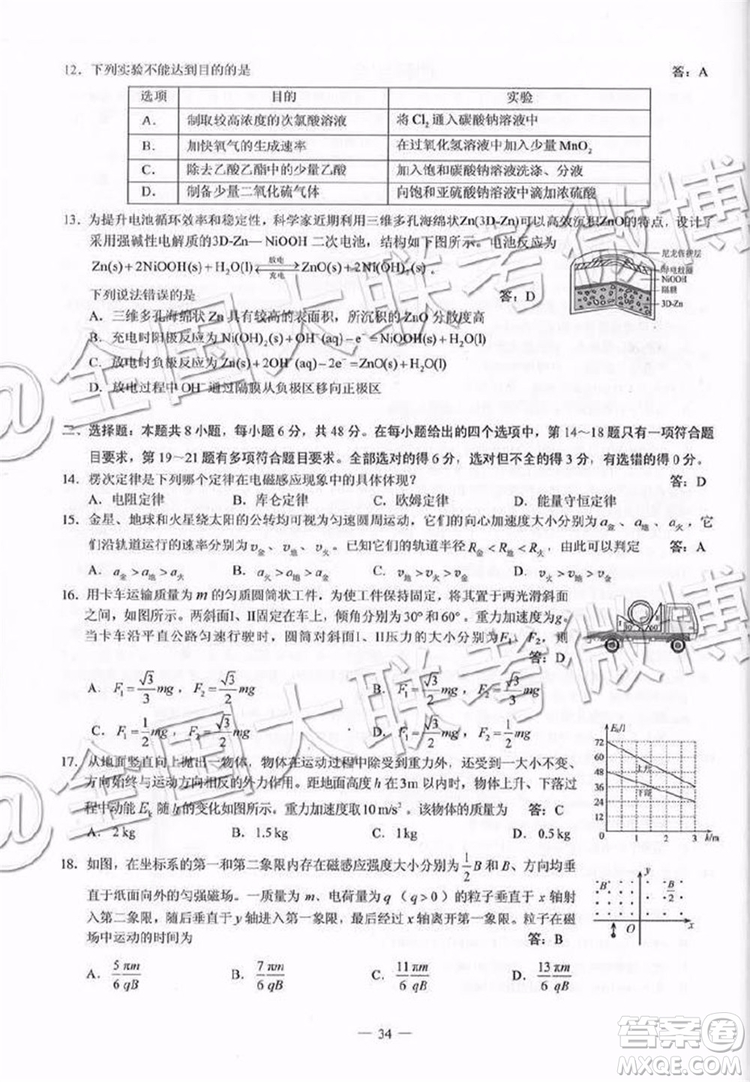 12. 下列实验不能达到目的的是 答：A
选项 目的 实验
A. 制取较高浓度的次氯酸溶液 将 Cl₂ 通入碳酸钠溶液中
B. 加快氧气的生成速率 在过氧化氢溶液中加入少量 MnO₂
C. 除去乙酸乙酯中的少量乙酸 加入饱和碳酸钠溶液洗涤、分液
D. 制备少量二氧化硫气体 向饱和亚硫酸钠溶液中滴加浓硫酸
13. 为提升电池循环效率和稳定性，科学家近期利用三维多孔海绵状Zn(3D-Zn)可以高效沉积ZnO的特点，设计了
采用强碱性电解质的3D-Zn—NiOOH 二次电池，结构如下图所示。电池反应为
Zn(s)+2NiOOH(s)+H₂O(l) ⇌ ZnO(s)+2Ni(OH)₂(s) .
放电
充电
尼龙保护层
导电线圈
NiOOH
隔膜
3D-Zn
下列说法错误的是 答：D
A. 三维多孔海绵状 Zn 具有较高的表面积，所沉积的ZnO 分散度高
B. 充电时阳极反应为 Ni(OH)₂(s)+OH⁻(aq)-e⁻=NiOOH(s)+H₂O(l)
C. 放电时负极反应为 Zn(s)+2OH⁻(aq)-2e⁻=ZnO(s)+H₂O(l)
D. 放电过程中 OH⁻通过隔膜从负极区移向正极区
二、选择题：本题共 8 小题，每小题 6 分，共 48 分。在每小题给出的四个选项中，第 14～18 题只有一项符合题
目要求，第 19～21 题有多项符合题目要求。全部选对的得 6 分，选对但不全的得 3 分，有选错的得 0 分。
14. 楞次定律是下列哪个定律在电磁感应现象中的具体体现？ 答：D
A. 电阻定律 B. 库仑定律 C. 欧姆定律 D. 能量守恒定律
15. 金星、地球和火星绕太阳的公转均可视为匀速圆周运动，它们的向心加速度大小分别为 a金、a地、a火，它
们沿轨道运行的速率分别为 v金、v地、v火。已知它们的轨道半径 R金<R地<R火，由此可以判定 答：A
A. a金>a地>a火 B. a火>a地>a金 C. v地>v火>v金 D. v火>v地>v金
16. 用卡车运输质量为 m 的匀质圆筒状工件，为使工件保持固定，将其置于两光滑斜面
之间，如图所示。两斜面I、II固定在车上，倾角分别为30°和60°。重力加速度为g。
当卡车沿平直公路匀速行驶时，圆筒对斜面I、II压力的大小分别为F₁、F₂，则
答：D
A. F₁=√3/3 mg，F₂=√3/2 mg B. F₁=√3/2 mg，F₂=√3/3 mg
C. F₁=1/2 mg，F₂=√3/2 mg D. F₁=√3/2 mg，F₂=1/2 mg
17. 从地面竖直向上抛出一物体，物体在运动过程中除受到重力外，还受到一大小不变、
方向始终与运动方向相反的外力作用。距地面高度 h 在3m以内时，物体上升、下落过
程中动能 Eₖ 随 h 的变化如图所示。重力加速度取10 m/s²。该物体的质量为 答：C
A. 2 kg B. 1.5 kg C. 1 kg D. 0.5 kg
Eₖ/J
72
60
48
36
24
12
0 1 2 3 h/m
上升
下落
18. 如图，在坐标系的第一和第二象限内存在磁感应强度大小分别为 1/2 B 和 B、方向均垂
直于纸面向外的匀强磁场。一质量为 m、电荷量为 q（q>0）的粒子垂直于 x 轴射
入第二象限，随后垂直于 y 轴进入第一象限，最后经过 x 轴离开第一象限。粒子在磁
场中运动的时间为 答：B
A. 5πm/6qB B. 7πm/6qB C. 11πm/6qB D. 13πm/6qB
y
B
B/2
O
x
— 34 —
@全国大联考微博
@全国大联考微博
答案圈
MXQE.COM